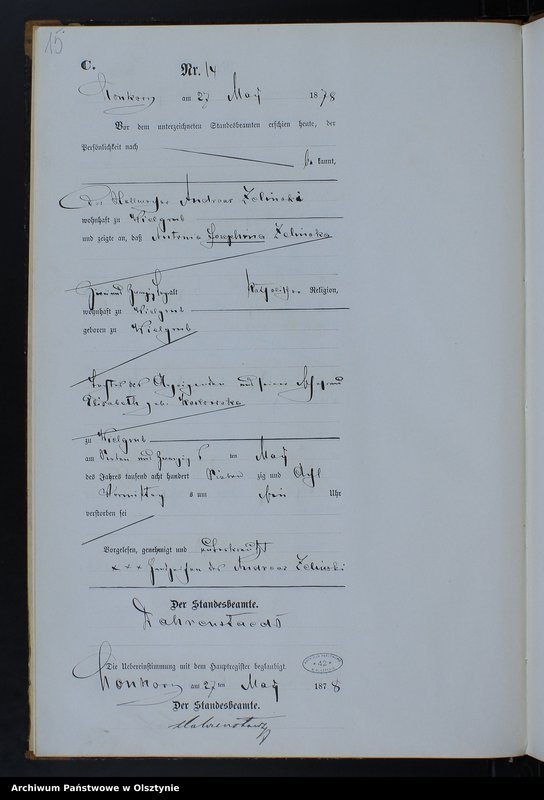 15
C.
Nr. 14
am 27 May 1878
Vor dem unterzeichneten Standesbeamten erschien heute, der
Persönlichkeit nach
be kannt,
der Andreas Zelinski
wohnhaft zu Kielgrub
und zeigte an, daß Antonie Josephina Zelinska
alt Katholischer Religion,
wohnhaft zu Kielgrub
geboren zu Kielgrub
Tochter des Anzeigenden und seiner Ehefrau
Elisabeth geb.
zu Kielgrub
am Sieben und Zwanzig s ten May
des Jahres tausend acht hundert Sieben zig und Acht
Vormittag s um Uhr
verstorben sei
Vorgelesen, genehmigt und unterkreuzt
x x x Handzeichen des Andreas Zelinski
Der Standesbeamte.
Die Uebereinstimmung mit dem Hauptregister beglaubigt
am 27 ten May 1878
Der Standesbeamte.
* 42 *
Archiwum Państwowe w Olsztynie